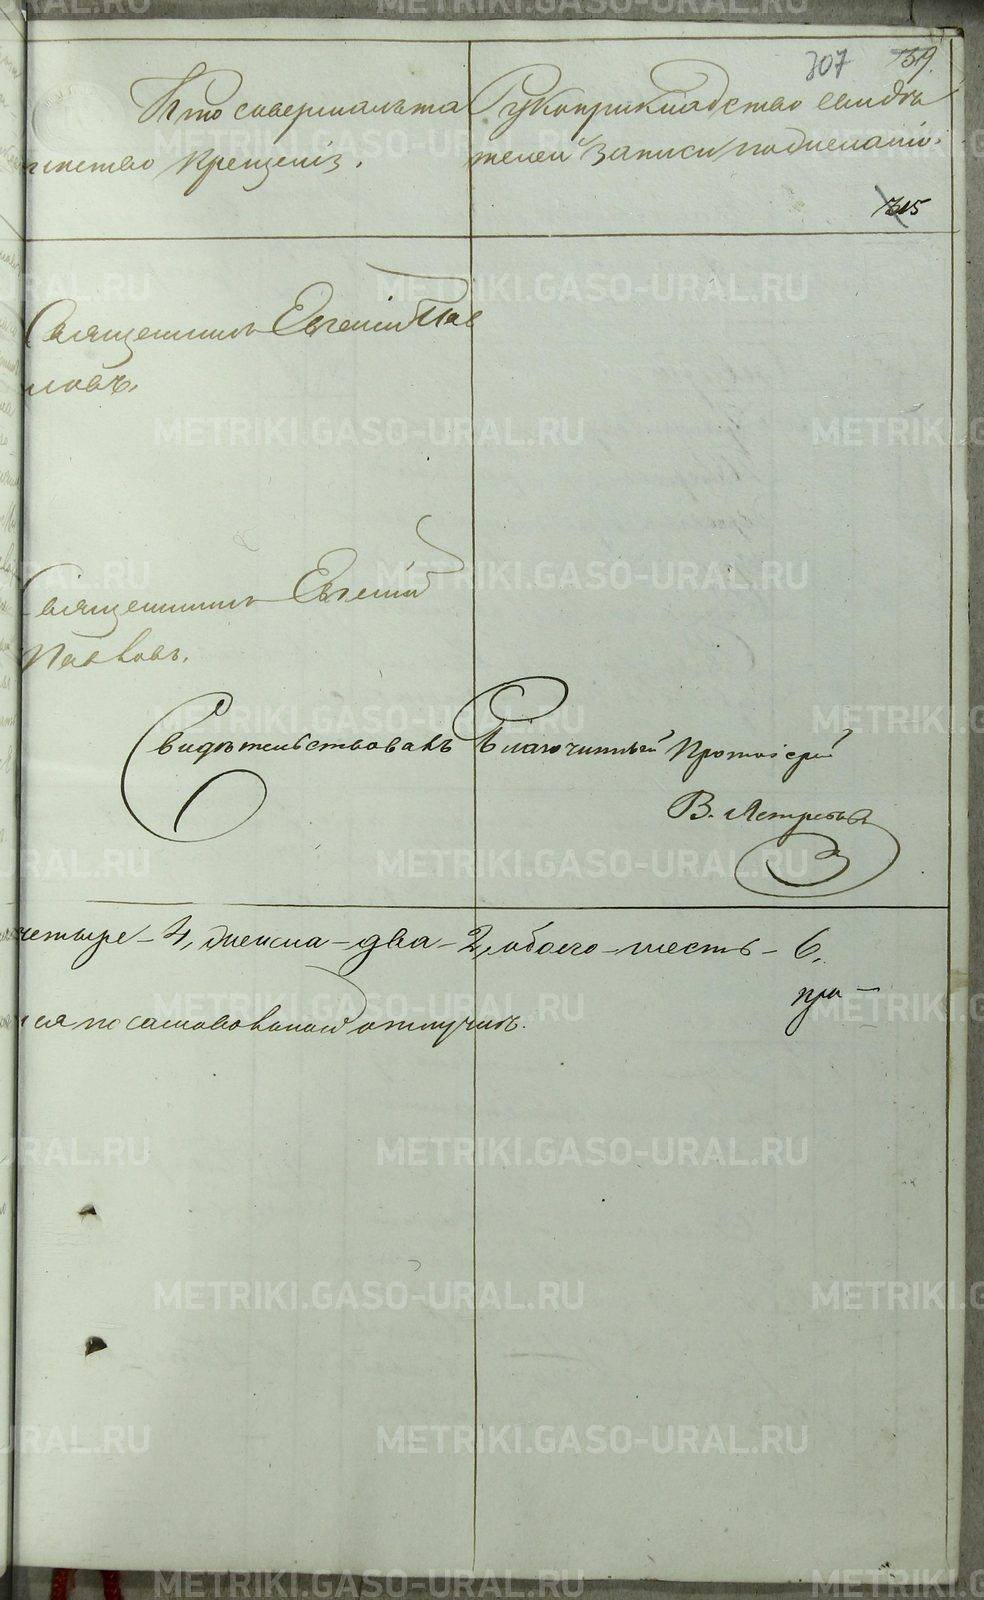 307 319.
Кто совершалъ та
инство крещенія.
Рукоприкладство свидѣ
телей записи по желанію.
315
Священникъ Евгеній Пав
ловъ.
Священникъ Евгеній
Павловъ.
Свидѣтельствовалъ Благочинный Протоіерей
В. Ястребовъ
четыре – 4, женска – два – 2, обоего – шесть – 6.
при –
ся по самовольной отлучкѣ.
METRIKI.GASO-URAL.RU